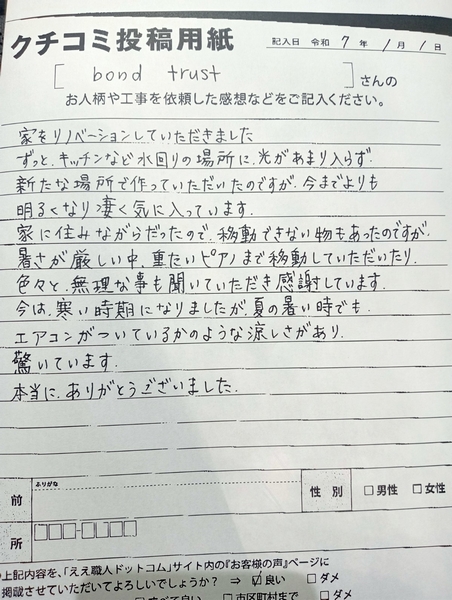 クチコミ投稿用紙
記入日 令和 7 年 1 月 1 日
[ bond trust ] さんの
お人柄や工事を依頼した感想などをご記入ください。
家をリノベーションしていただきました
ずっと、キッチンなど水回りの場所に、光があまり入らず、
新たな場所で作っていただいたのですが、今までよりも
明るくなり凄く気に入っています。
家に住みながらだったので、移動できない物もあったのですが、
暑さが厳しい中、重たいピアノまで移動していただいたり、
色々と、無理な事も聞いていただき感謝しています。
今は、寒い時期になりましたが、夏の暑い時でも、
エアコンがついているかのような涼しさがあり、
驚いています。
本当に、ありがとうございました。
ふりがな
前
性別 □男性 □女性
所
上記内容を、「ええ職人ドットコム」サイト内の『お客様の声』ページに
掲載させていただいてよろしいでしょうか? ⇒ ☑良い □ダメ
□市区町村まで